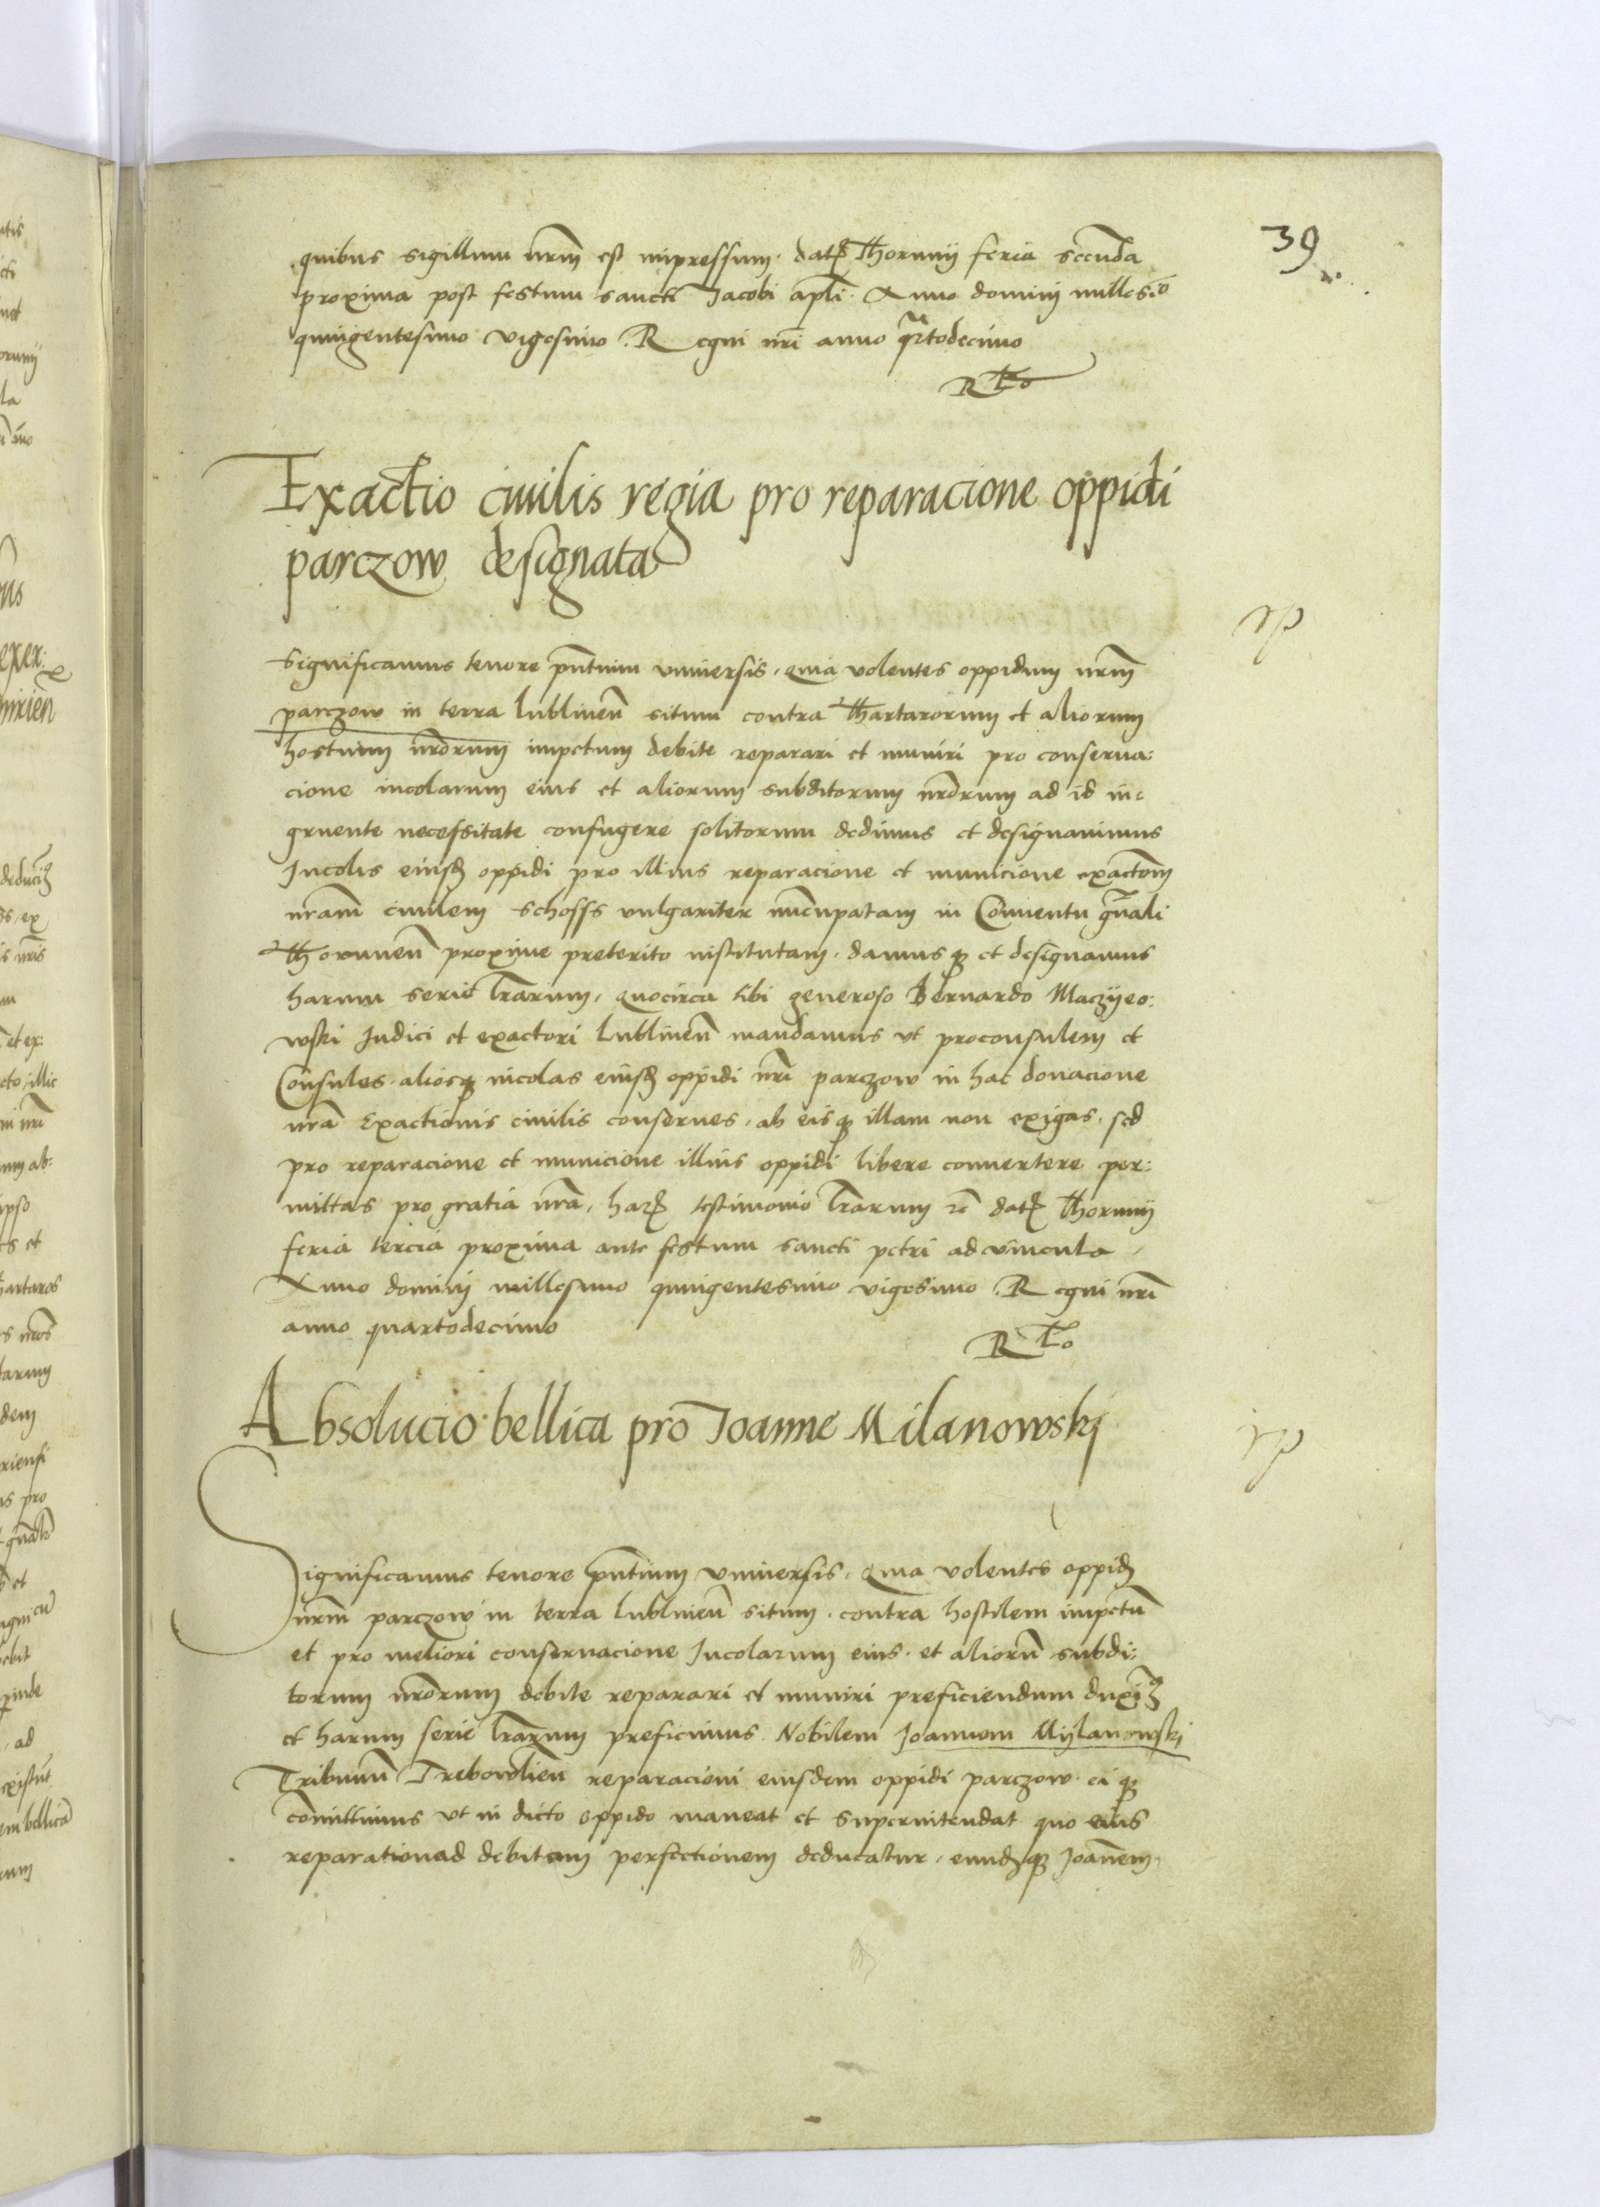 39
quibus sigillum nrm̄ est impressum. datꝭ Thorunij feria secunda
proxima post festum sancti Jacobi apli. Anno domini millesiō
quingentesimo vigesimo. Regni nri anno qrtodecimo
Rta
Exactio ciuilis regia pro reparacione oppidi
parczow designata
Significamus tenore pn̄tium vniuersis, quia volentes oppidum nrm̄
parczow in terra lublinen̄ situm contra Thartarorum et aliorum
hostium nrōrum impetum debite reparari et muniri pro conserua:
cione incolarum eius et aliorum subditorum nrōrum ad id in:
gruente necessitate confugere solitorum dedimus et designauimus
Incolis eiusd̄ oppidi pro illius reparacione et municione exactōm
nrām ciuilem schoss vulgariter nūcupatam in Conuentu gn̄ali
Thorunen̄ proxime preterito institutam, damusqꝫ et designamus
harum serie lrārum, quocirca tibi generoso Bernardo Maczyeo:
wski Judici et exactori lublinen̄ mandamus vt proconsulem et
Consules aliosqꝫ incolas eiusd̄ oppidi nri parczow in hac donacione
nrā Exactionis ciuilis conserues, ab eisqꝫ illam non exigas, sed
pro reparacione et municione illius oppidi libere conuertere per:
mittas pro gratia nrā, harꝭ testimonio lrārum ꝛc̄ datꝭ Thorunij
feria tercia proxima ante festum sancti petri ad vincula,
Anno domini millesimo quingentesimo vigesimo. Regni nri
anno quartodecimo
Rta
Absolucio bellica pro Joanne Milanowskj
Significamus tenore pn̄tium vniuersis, quia volentes oppid̄
nrm̄ parczow in terra lublinen̄ situm, contra hostilem impetū
et pro meliori conseruacione Incolarum eius, et aliorū subdi:
torum nrōrum debite reparari et muniri preficiendum duxiꝫ
et harum serie lrārum preficimus Nobilem Joannem Mijlanowskj
Tribunū Trebowlien̄ reparacioni eiusdem oppidi parczow, ei qꝫ
cōmittimus vt in dicto oppido maneat et superintendat quo eius
reparatio ad debitam perfectionem deducatur, eundꝫqꝫ Joānem